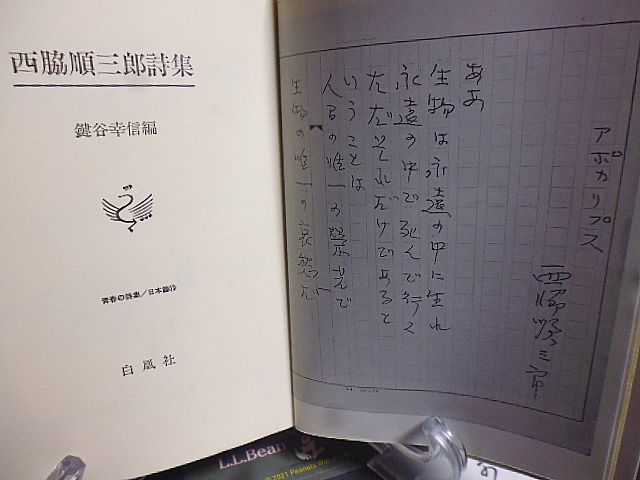 西脇順三郎詩集
鍵谷幸信編
青春の詩集/日本篇⑯
白凰社
アポカリプス
西脇順三郎
ああ
生物は永遠の中に生れ
永遠の中で死んで行く
ただそれだけであると
いうことは
人間の唯一の栄光で
生物の唯一の哀愁だ
L.L.Bean
©2021 Peanuts Wor